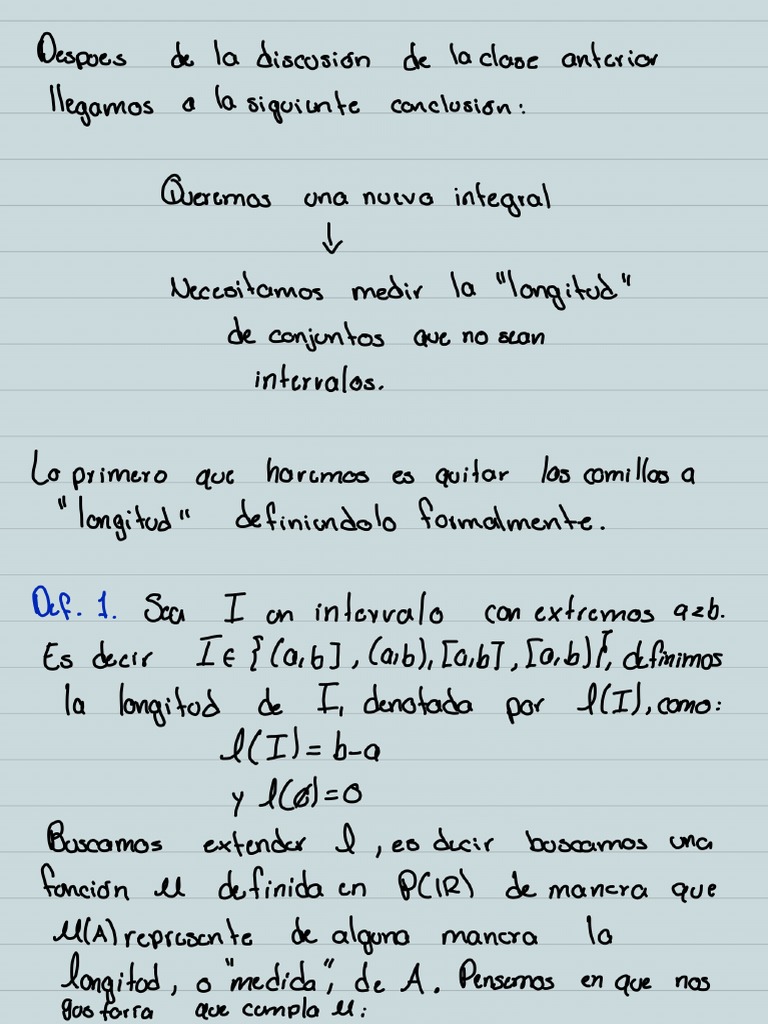 Despues de la discusión de la clase anterior
llegamos a la siguiente conclusión:
Queremos una nueva integral
↓
Necesitamos medir la "longitud"
de conjuntos que no sean
intervalos.
Lo primero que haremos es quitar las comillas a
"longitud" definiendolo formalmente.
Def. 1. Sea I un intervalo con extremos a≤b.
Es decir I∈{(a,b], (a,b), [a,b], [a,b)}, definimos
la longitud de I, denotada por l(I), como:
l(I)=b-a
y l(∅)=0
Buscamos extender l, es decir buscamos una
función μ definida en P(ℝ) de manera que
μ(A) represente de alguna manera la
longitud, o "medida", de A. Pensemos en que nos
gustaria que cumpla μ: